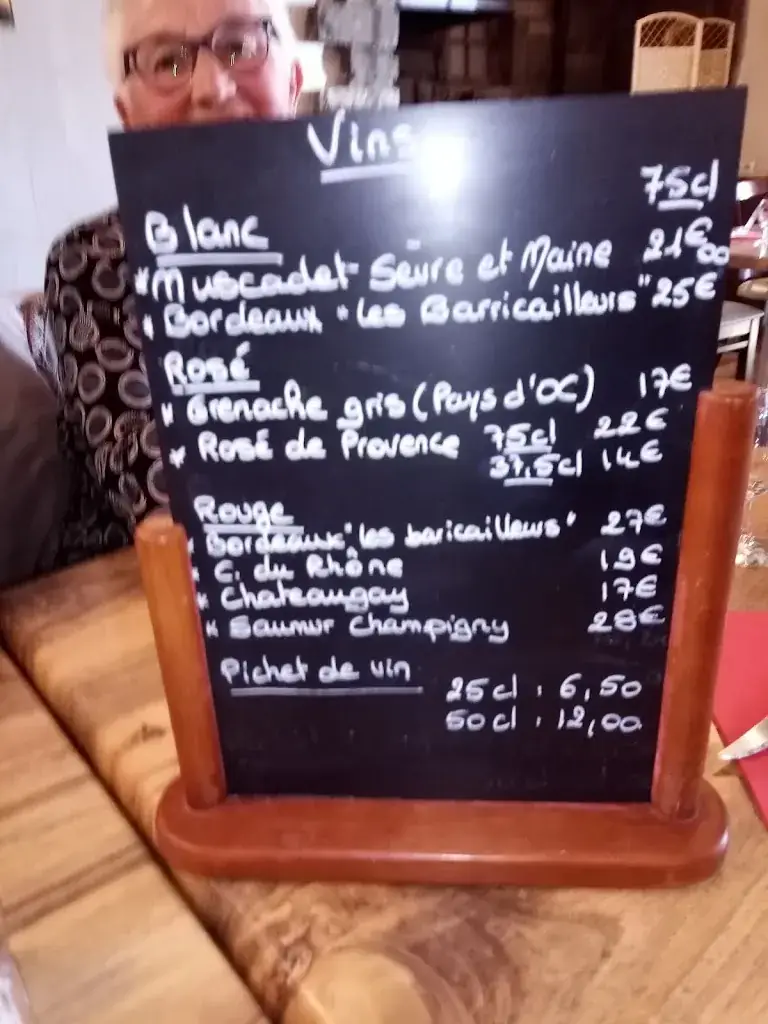 Vins
75cl
Blanc
* Muscadet Sèvre et Maine 21€00
* Bordeaux "Les Barricailleurs" 25€
Rosé
* Grenache gris (Pays d'OC) 17€
* Rosé de Provence 75cl 22€
37,5cl 14€
Rouge
* Bordeaux "les baricailleurs" 27€
* C. du Rhône 19€
* Chateaugay 17€
* Saumur Champigny 28€
Pichet de vin
25cl : 6,50
50cl : 12,00